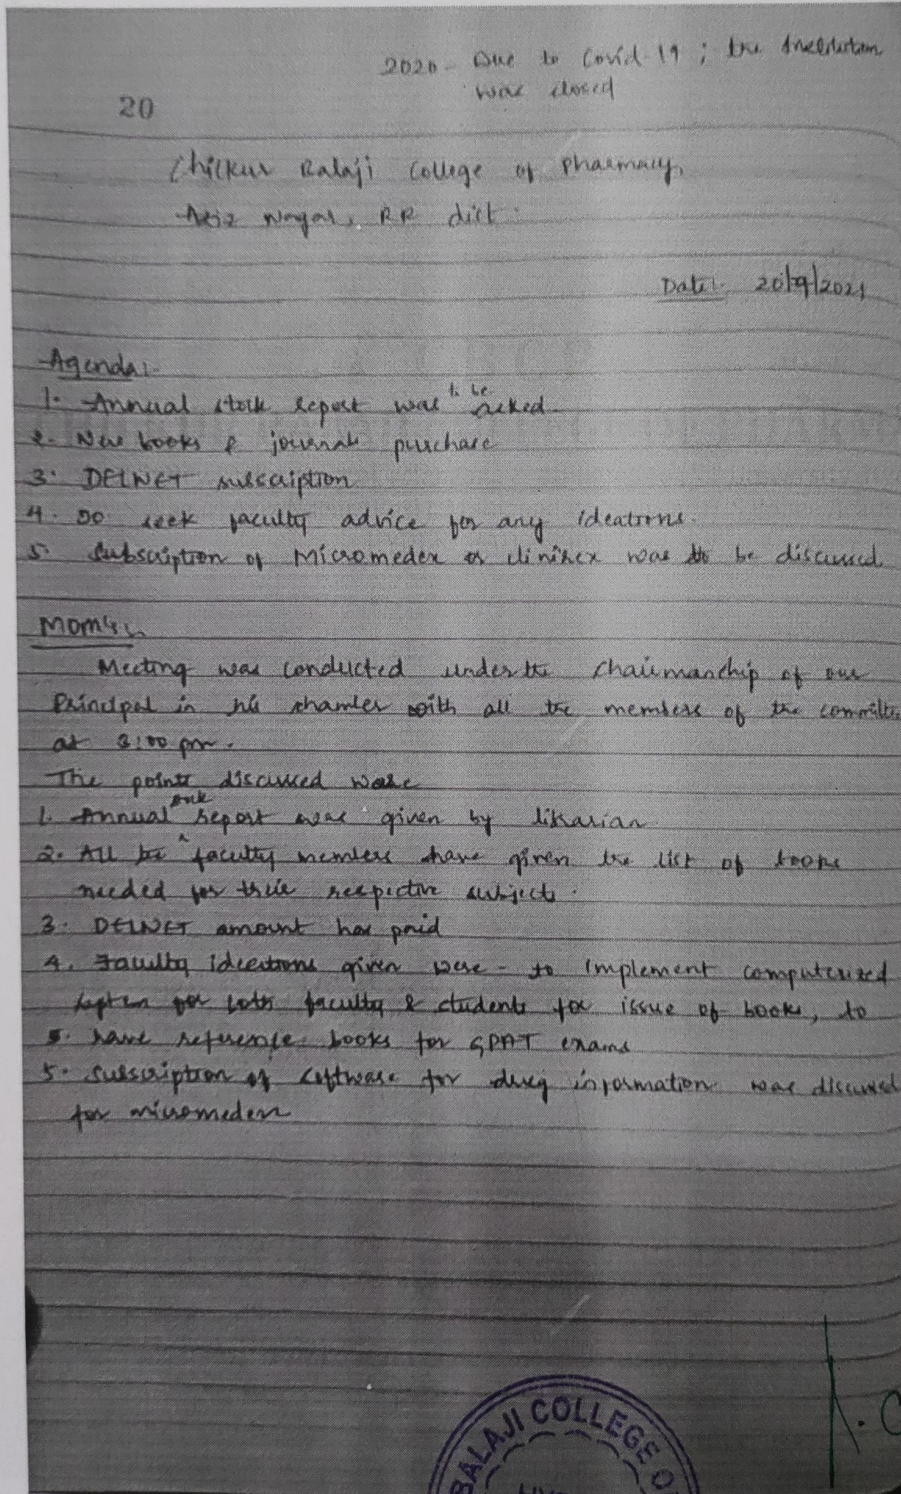 2020 - Due to Covid-19 ; the Institution
was closed
20
Chilkur Balaji College of Pharmacy,
Aziz Nagar, RR dist.
Date:- 20/9/2021
Agenda:-
1. Annual stock report was to be asked.
2. New books & journals purchase
3. DELNET suscription
4. To seek faculty advice for any ideations.
5. Subscription of Micromedex or clinirex was to be discussed
Mom's:-
Meeting was conducted under the chairmanship of our
Principal in his chamber with all the members of the committee
at 3:00 pm.
The points discussed were
1. Annual stock report was given by librarian
2. All the faculty members have given the list of books
needed for their respective subjects.
3. DELNET amount has paid
4. Faculty ideations given were - to implement computerized
system for both faculty & students for issue of books, to
have reference books for GPAT exams
5. Suscription of software for drug information was discussed
for micromedex
BALAJI COLLEGE O